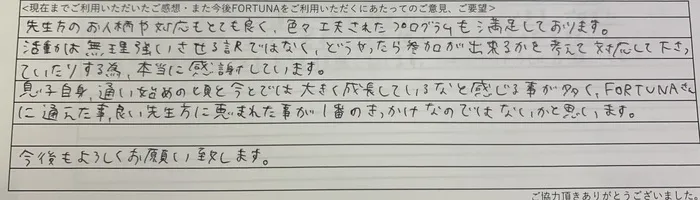 <現在までご利用いただいたご感想・また今後FORTUNAをご利用いただくにあたってのご意見、ご要望>
先生方のお人柄や対応もとても良く、色々工夫されたプログラムも満足しております。
活動は無理強いさせる訳ではなく、どうやったら参加が出来るかを考えて対応して下さっ
ていたりする為、本当に感謝しています。
息子自身、通い始めの頃と今とでは大きく成長しているなと感じる事が多く、FORTUNAさん
に通えた事、良い先生方に恵まれた事が1番のきっかけなのではないかと思います。
今後もよろしくお願い致します。
ご協力頂きありがとうございました。